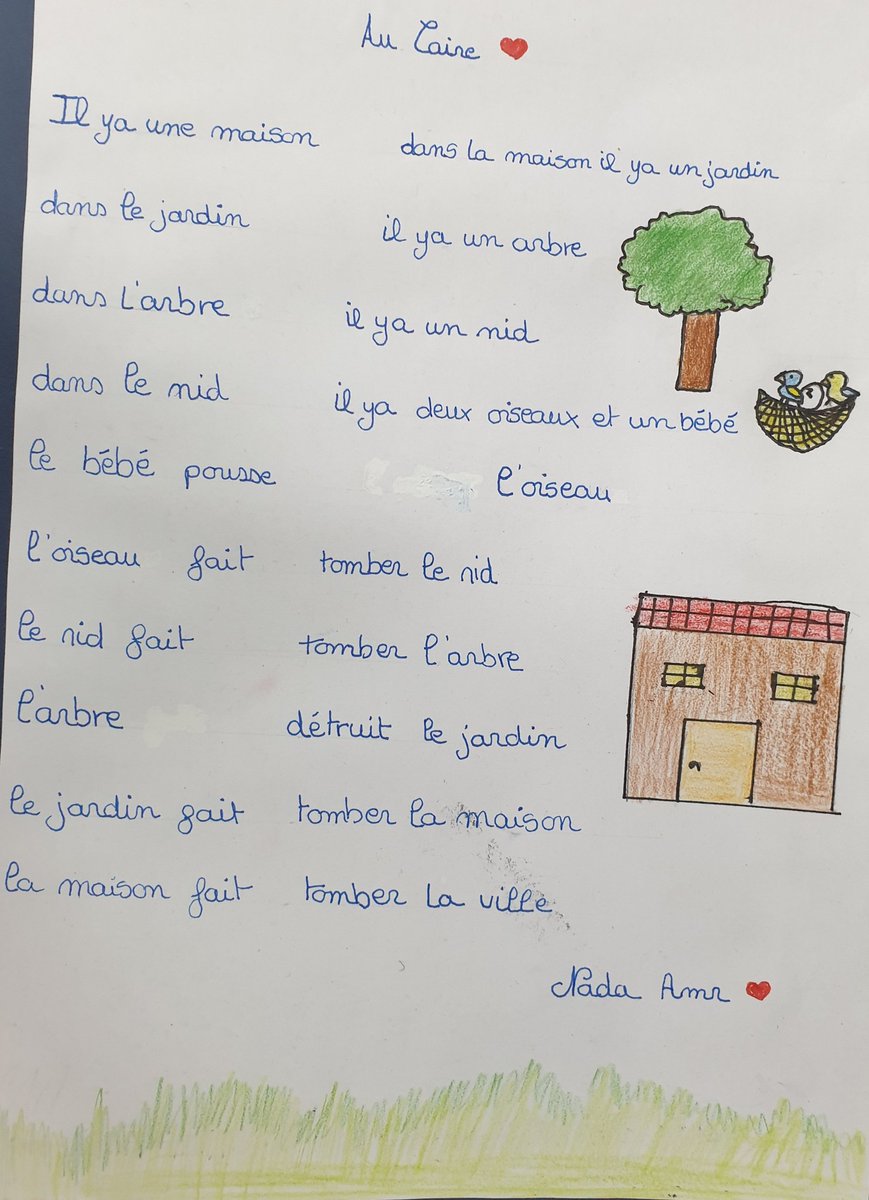 Au Caire
Il ya une maison dans la maison il ya un jardin
dans le jardin il ya un arbre
dans l'arbre il ya un nid
dans le nid il ya deux oiseaux et un bébé
le bébé pousse l'oiseau
l'oiseau fait tomber le nid
le nid fait tomber l'arbre
l'arbre détruit le jardin
le jardin fait tomber la maison
la maison fait tomber la ville
Nada Amr